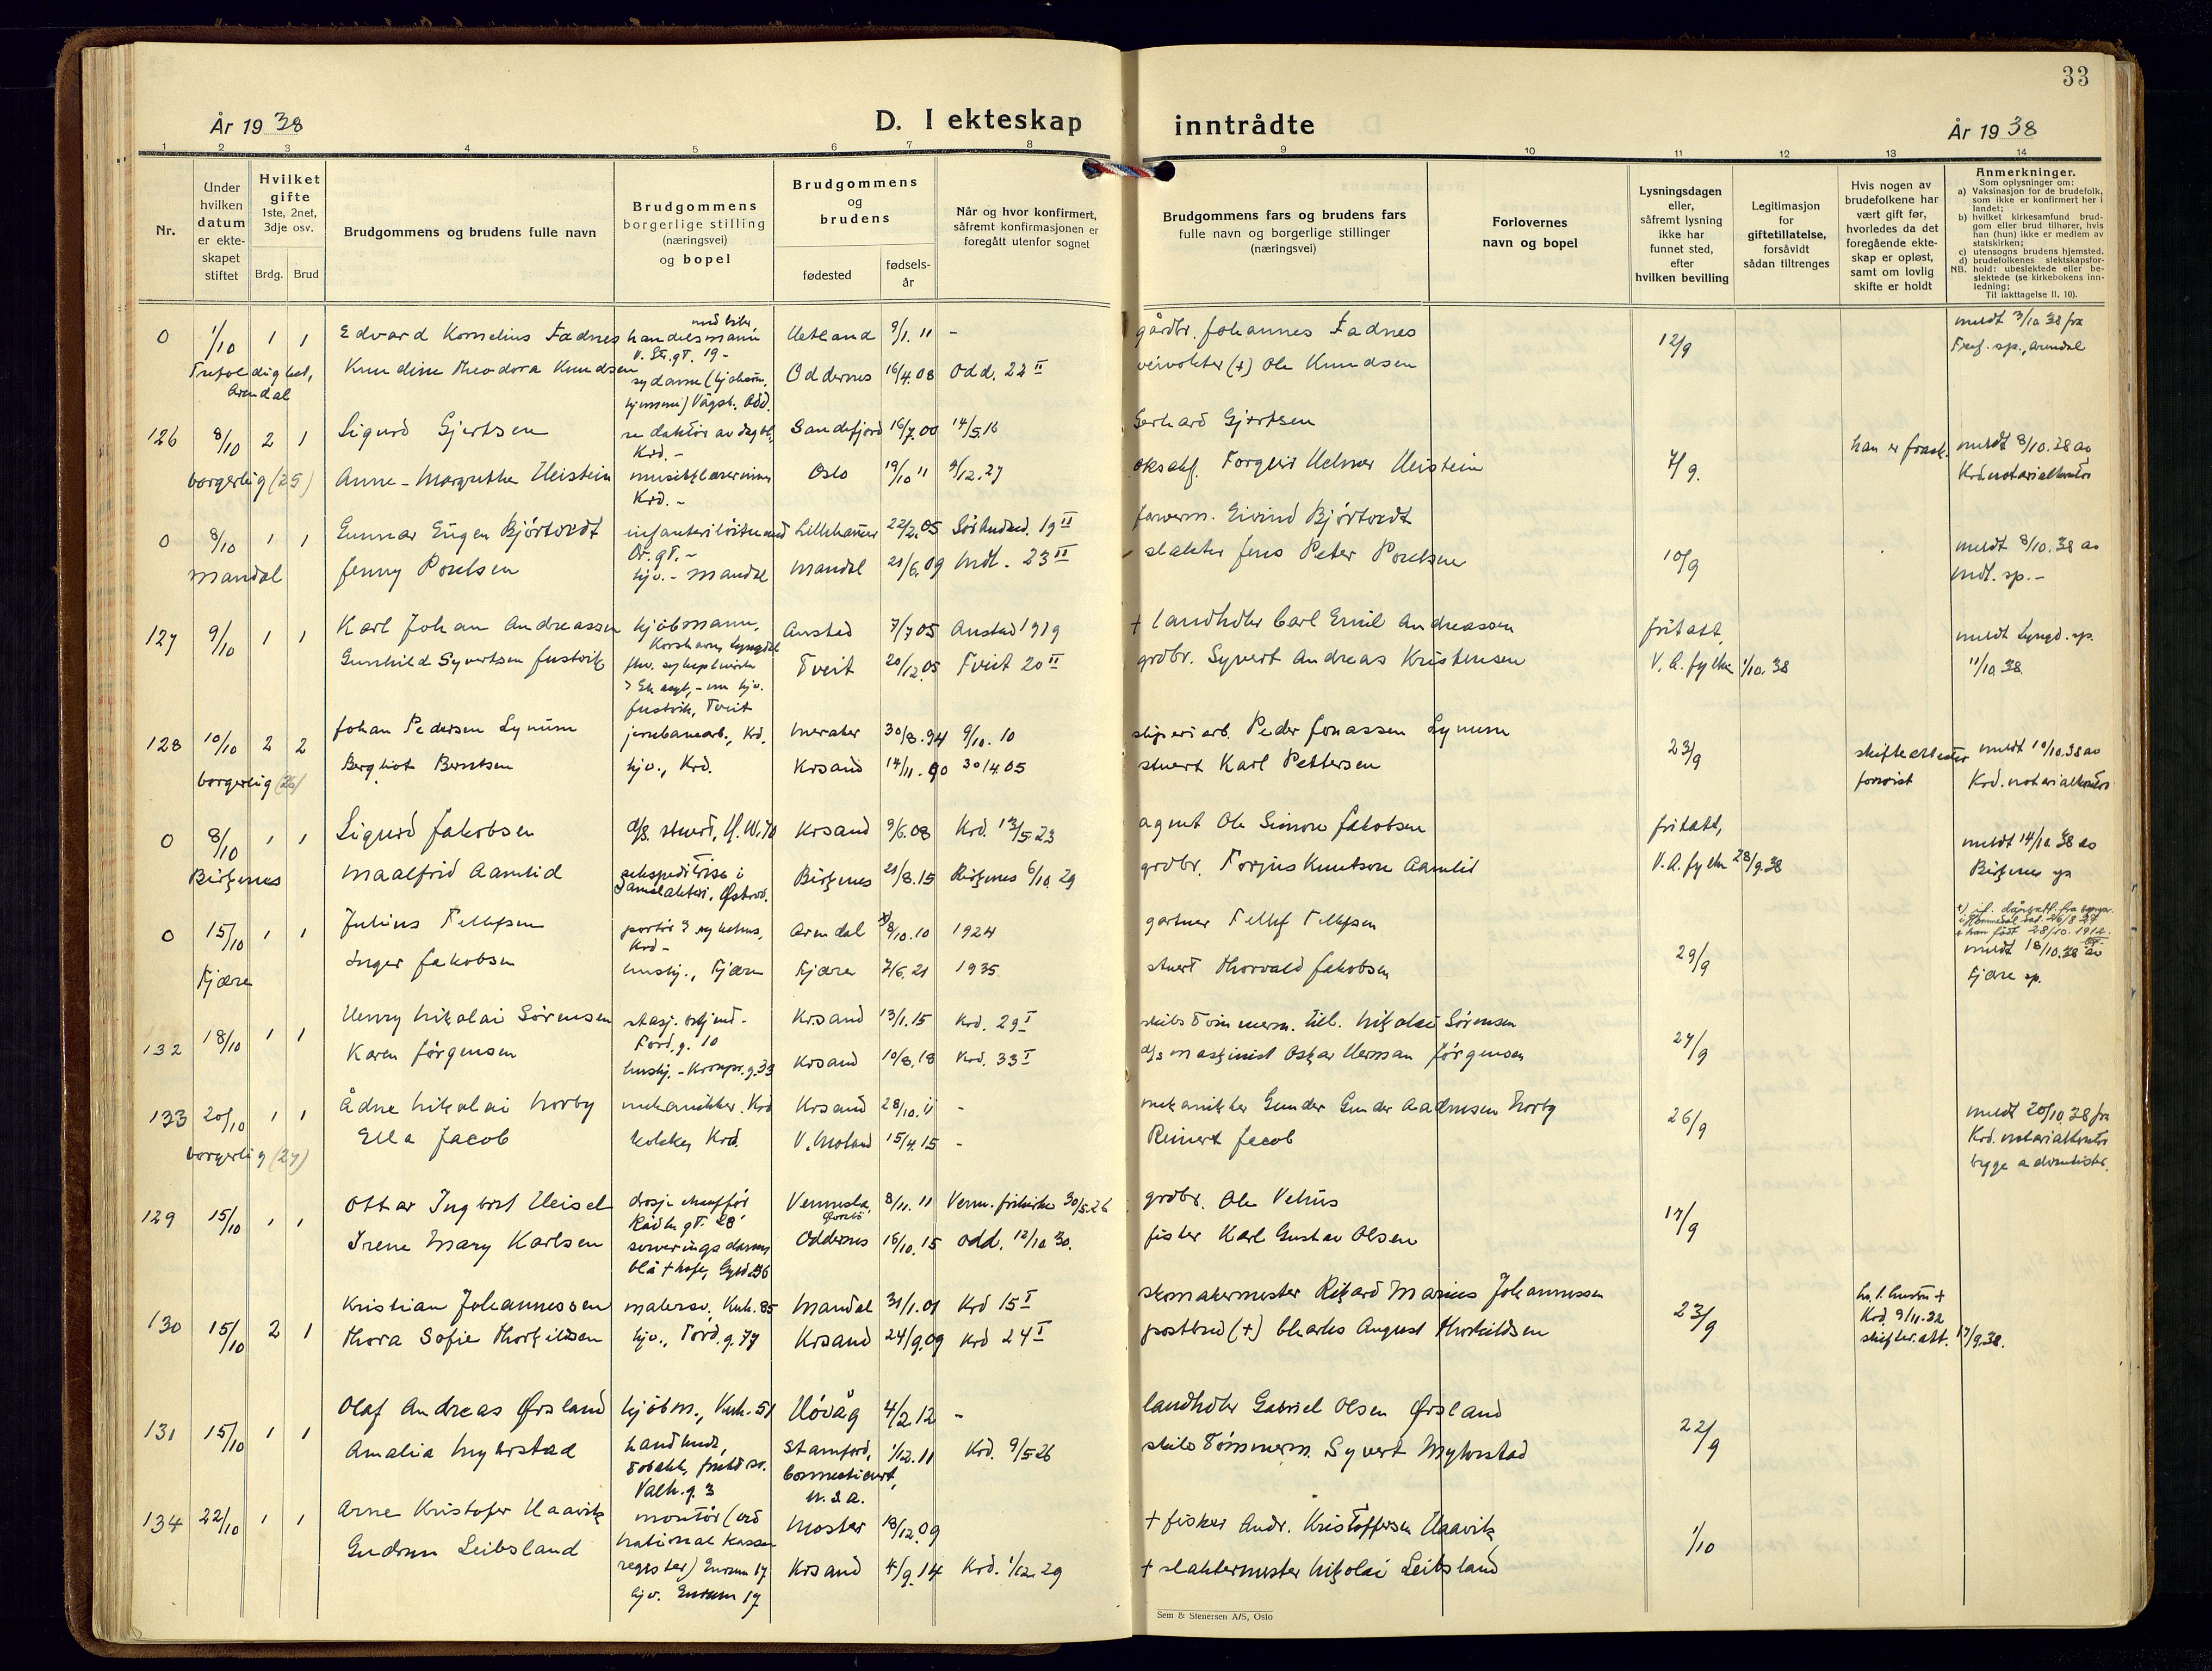 33
År 1938
D. I ekteskap
inntrådte
År 1938
1 2 3 4 5 6 7 8 9 10 11 12 13 14
Nr.
Under hvilken datum er ekteskapet stiftet
Hvilket gifte 1ste, 2net, 3dje osv.
Brdg. Brud
Brudgommens og brudens fulle navn
Brudgommens borgerlige stilling (næringsvei) og bopel
Brudgommens og brudens
fødested
fødselsår
Når og hvor konfirmert, såfremt konfirmasjonen er foregått utenfor sognet
Brudgommens fars og brudens fars fulle navn og borgerlige stillinger (næringsvei)
Forlovernes navn og bopel
Lysningsdagen eller, såfremt lysning ikke har funnet sted, efter hvilken bevilling
Legitimasjon for giftetillatelse, forsåvidt sådan tiltrenges
Hvis nogen av brudefolkene har vært gift før, hvorledes da det foregående ekteskap er opløst, samt om lovlig skifte er holdt
Anmerkninger.
Som oplysninger om:
a) Vaksinasjon for de brudefolk, som ikke er konfirmert her i landet;
b) hvilket kirkesamfund brudgom eller brud tilhører, hvis han (hun) ikke er medlem av statskirken;
c) utensogns brudens hjemsted.
d) brudefolkenes slektskapsforhold: ubeslektede eller beslektede (se kirkebokens innledning;
NB. Tit iakttagelse II. 10).
0 1/10 1 1 Edvard Kornelius Fadnes handelsmann 9/1. 11 - gårdbr. Johannes Fadnes 12/9 meldt 3/10 38 fra
V. St. gt. 19 - Tref. sp., Arendal
Trefoldighet, Arendal
Knudine Theodora Knudsen Oddernes 16/4.08 Odd. 22 II veivokter (+) Ole Knudsen
Vågsb. Odd.
126 8/10 2 1 Sigurd Gjertsen redaktør av dagbl., Krd. - Sandefjord 16/7.00 14/5.16 Gerhard Gjertsen 7/9. han er frask. meldt 8/10.38 av
borgerlig (25) Anne-Margrethe Heistein musikklærerinne Krd. - Oslo 19/10 11 9/12.27 Torgeir Helmer Heistein Krd. notarialkontor
0 8/10 1 1 Gunnar Eugen Bjørtvedt Lillehamer 22/2.05 19 II Eivind Bjørtvedt 10/9 meldt 8/10.38 av
Mandal Jenny Poulsen hjv. - Mandal Mandal 21/6.09 Mdl. 23 II slakter Jens Peter Poulsen Mdl. sp. -
127 9/10 1 1 Karl Johan Andreassen kjøbmann, Korshavn, Lyngdal Austad 7/7 05 Austad 1919 + landhdler Carl Emil Andreassen fritatt, meldt Lyngd. sp.
Gunhild Syvertsen Justvik Tveit 20/12.05 Tveit 20 II grdbr. Syvert Andreas Kristensen V. A. fylke 1/10.38 11/10 38.
Justvik, Tveit
128 10/10 2 2 Johan Pedersen Lynum jernbanearb., Krd. Meraker 30/8.94 9/10.10 sliperiarb. Peder Jonassen Lynum 23/9 skifteattester meldt 10/10.38 av
borgerlig (26) Bergliot Berntsen hjv., Krd. Krsand 14/11.90 30/4.05 stuert Karl Pettersen forevist Krd. notarialkontor
0 8/10 1 1 Sigurd Jakobsen d/s. stuert, H. W. 70 Krsand 9/6.08 Krd. 13/5 23 agent Ole Simon Jakobsen fritatt, meldt 14/10.38 av
Birkenes Maalfrid Aamlid Birkenes 21/8.15 Birkenes 6/10.29 grdbr. Torjus Knutson Aamlid V. A. fylke 28/9.38 Birkenes sp
0 15/10 1 1 Julius Tellefsen portør Arendal 8/10.10 1924 gartner Tellef Tellefsen 29/9 meldt 18/10.38 av
Fjære Inger Jakobsen hushj., Fjære Fjære 7/6.21 1935 stuert Thorvald Jakobsen Fjære sp.
132 18/10 1 1 Henry Nikolai Sørensen Tord. g. 10 Krsand 13/1.15 Krd. 29 I Nikolai Sørensen 24/9
Karen Jørgensen hushj. - Kronpr. g. 33 Krsand 10/8.18 Krd. 33 I d/s maskinist Oskar Herman Jørgensen
133 20/10 1 1 Ådne Nikolai Norby mekanikker. Krd Krsand 28/10.11 - mekanikker Gunder Gunder Aadnesen Norby 26/9 meldt 20/10.38 fra
borgerlig (27) Ella Jacob kokke, Krd. V. Moland 15/4.15 - Reinert Jacob Krd. notarialkontor
begge adventister.
129 15/10 1 1 Ottar Ingbret Heisel drosje chauffør Rådh. gt. 28 Vennesla, 8/11.11 Venn. frikirke 30/5.26 grdbr. Ole Vehus 17/9
Irene Mary Karlsen serveringsdame Oddernes 16/10.15 Odd. 12/10 30. fisker Karl Gustav Olsen
130 15/10 2 1 Kristian Johannessen malersv. Kuh. 85 Mandal 31/1.01 Krd 15 I skomakermester Rikard Marius Johannessen 23/9 hs. 1. hustru + Krd. 9/11.32
Thora Sofie Thorkildsen hjv., Tord. g. 77 Krsand 24/9.09 Krd 24 I postbud (+) Charles August Thorkildsen skifteatt. 17/9.38.
131 15/10 1 1 Olaf Andreas Øisland kjøbm., Kuh. 51 Høvåg 4/2 12 - landhdler Gabriel Olsen Øisland 22/9
Amalia Myhrstad Valh. g. 3 Stamford, Connecticut, U.S.A. 1/12.11 Krd. 9/5 26 skibstømmerm. Syvert Myhrstad
134 22/10 1 1 Arne Kristofer Haavik montør (ved National kassaregister) Moster 18/12.09 + fisker Andr. Kristoffersen Haavik 1/10
Gudrun Leibsland Krsand 4/9.14 Krd. 1/12 29 + slaktermester Nikolai Leibsland
Sem & Stenersen A/S, Oslo